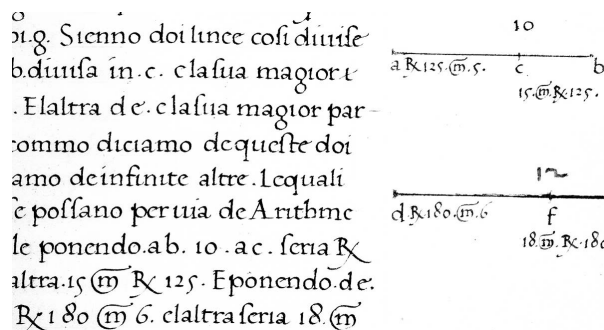 .g. Sienno doi linee cosi diuise
b. diuisa in. c. la sua magior e
. E laltra de. c la sua magior par
commo diciamo de queste doi
amo de infinite altre. Lequali
se possano per uia de Arithme
le ponendo. ab. 10. ac. seria ℞
altra. 15 m̅ ℞ 125. E ponendo. de.
℞. 180 m̅ 6. elaltra seria 18. m̅
10
a ℞ 125. m̅. 5. c b
15. m̅. ℞. 125.
12
d. ℞. 180. m̅. 6 f
18. m̅. ℞. 180